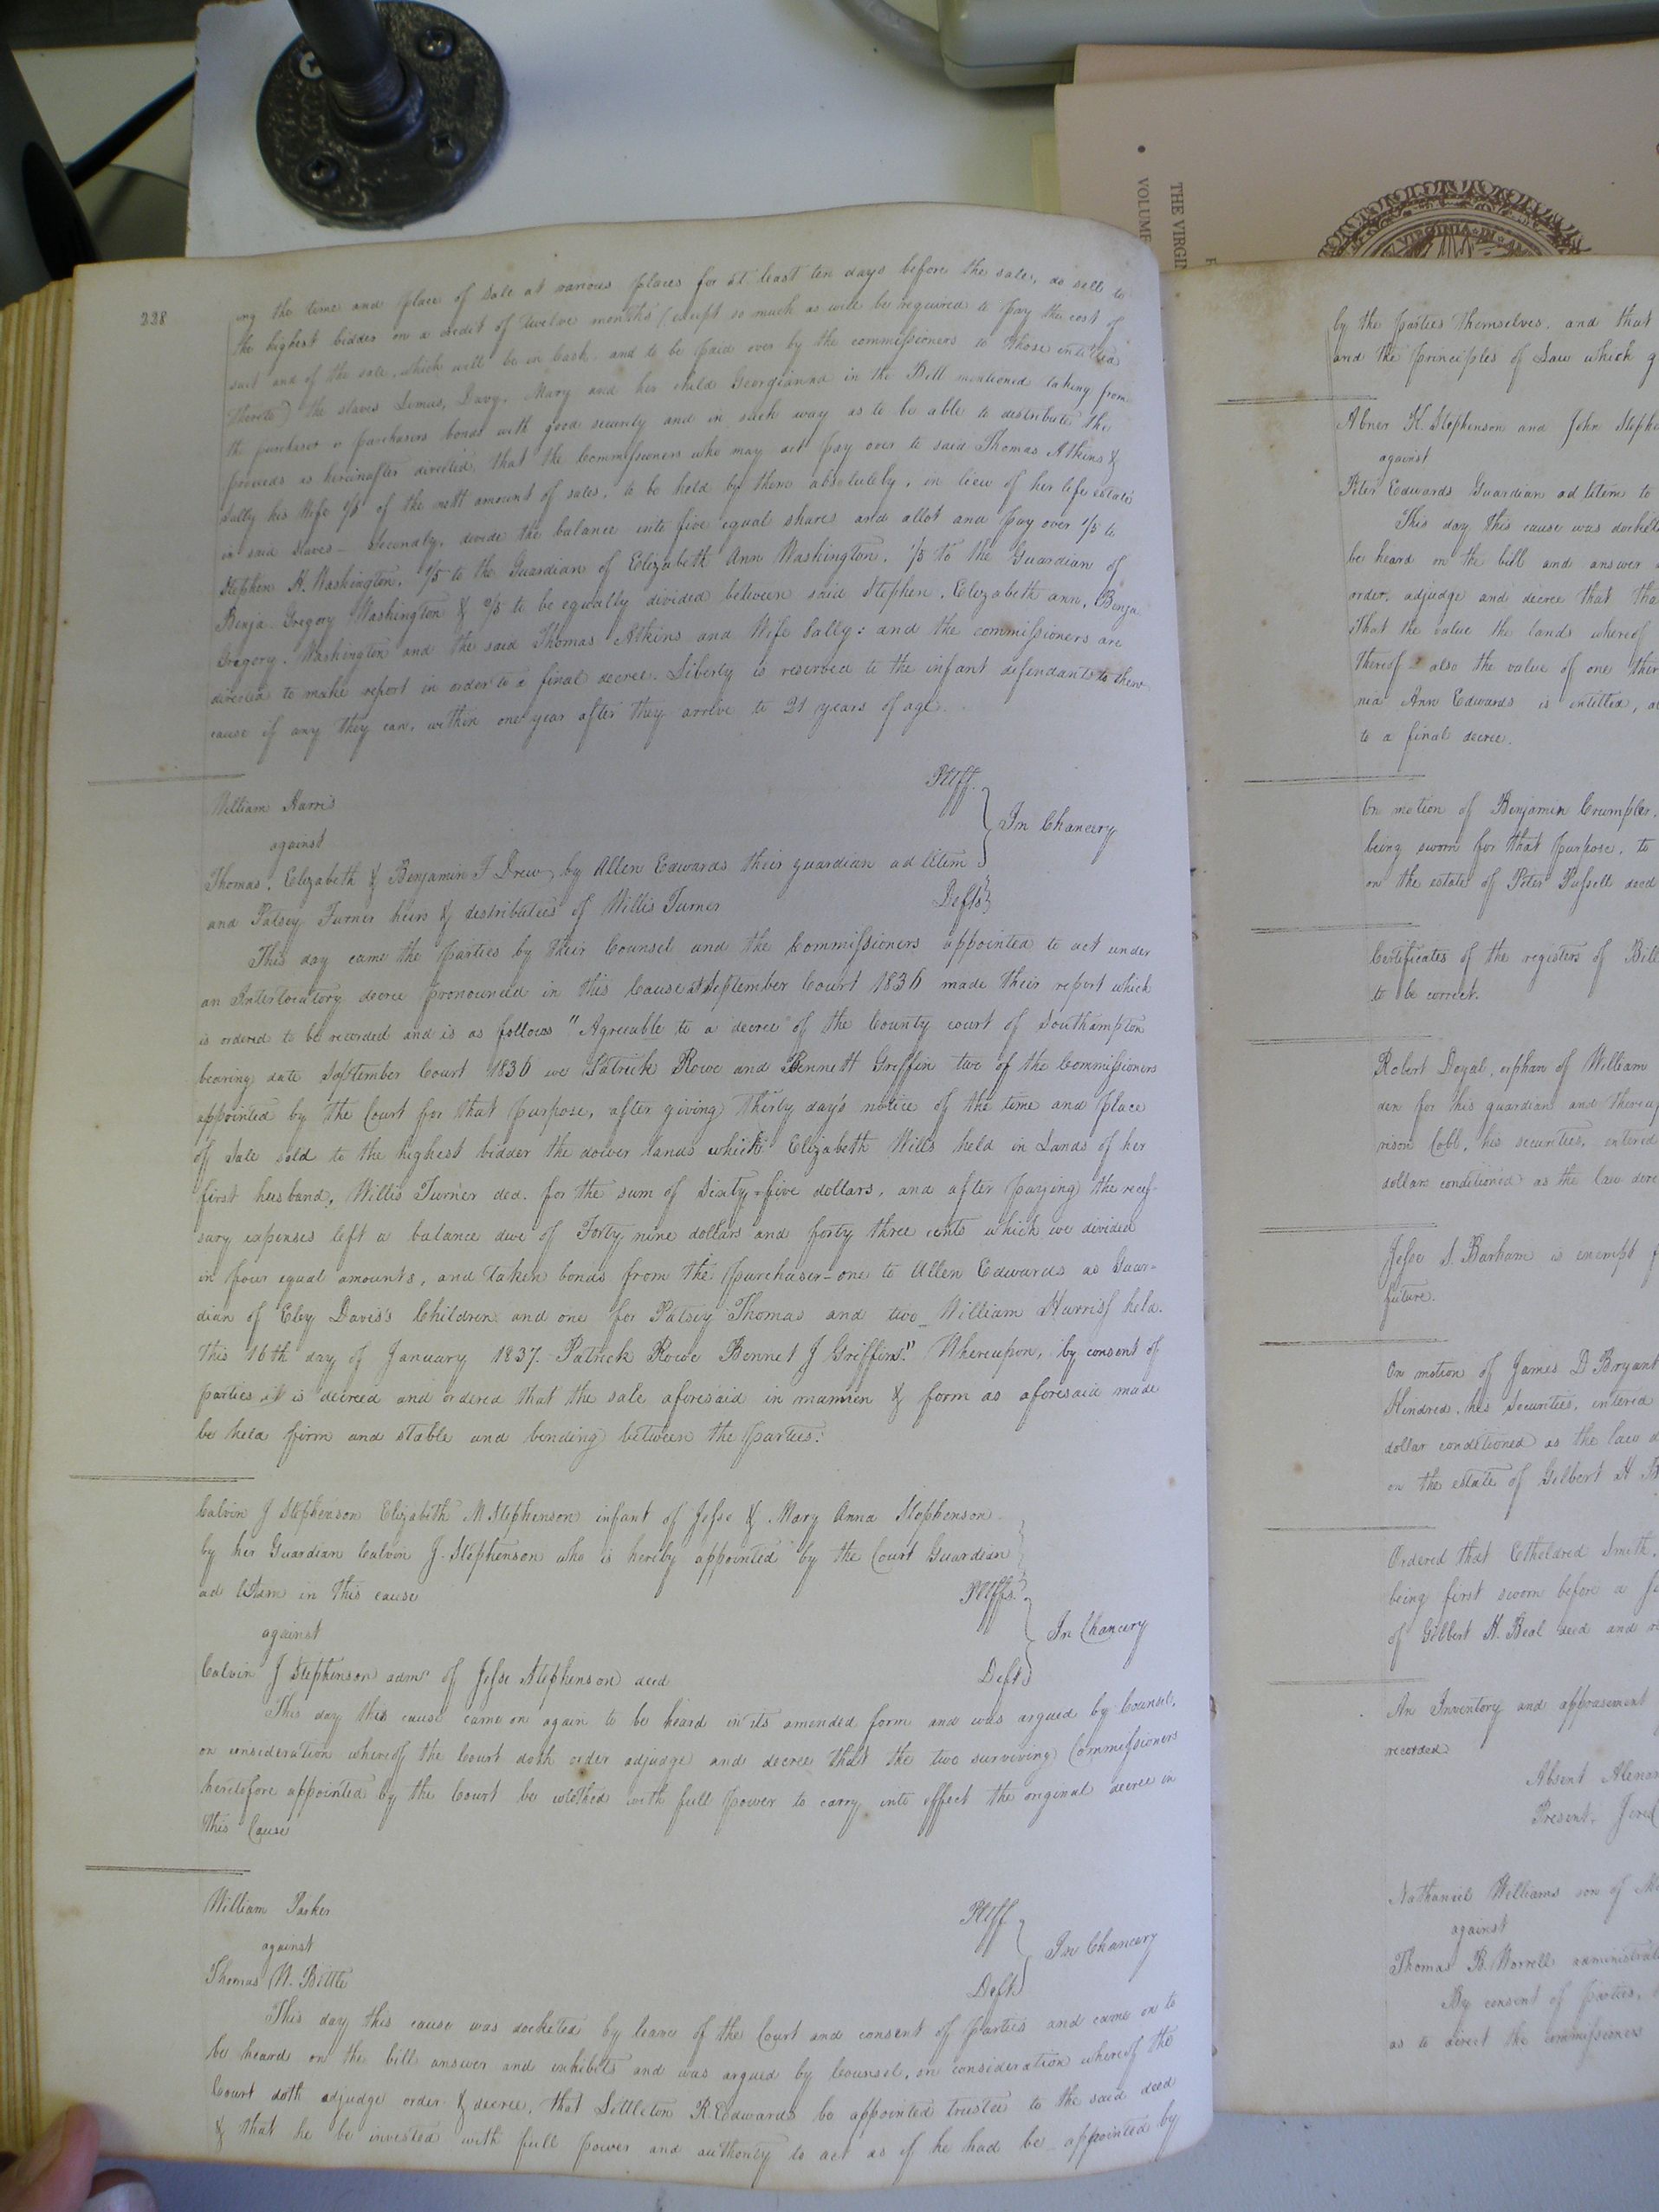 228
ing the time and place of Sale at various places for at least ten days before the sale, do sell to
the highest bidder on a credit of twelve months (except so much as will be required to pay the cost of
suit and of the sale, which will be in Cash, and to be paid over by the commissioners to those entitled
thereto) the slaves Davy, Mary and her child Georgianna in the Bill mentioned taking from
the purchaser or purchasers bonds with good security and in such way as to be able to distribute the
proceeds as hereinafter directed, that the Commissioners who may act pay over to said Thomas Atkins &
Sally his Wife of the nett amount of sales, to be held by them absolutely, in lieu of her life estate
in said slaves - Secondly, divide the balance into five equal shares and allot and pay over 1/5 to
Stephen H. Washington, 1/5 to the Guardian of Elizabeth Ann Washington, 1/5 to the Guardian of
Benja Gregory Washington & 2/5 to be equally divided between said Stephen, Elizabeth ann, Benja
Gregory Washington and the said Thomas Atkins and Wife Sally: and the commissioners are
directed to make report in order to a final decree. Liberty is reserved to the infant defendants to shew
cause if any they can, within one year after they arrive to 21 years of age.
William Harris Pltff.
against In Chancery
Thomas, Elizabeth & Benjamin T Drew, by Allen Edwards their guardian ad litem
and Patsey Turner heirs & distributees of Willis Turner Defts
This day came the Parties by their Counsel and the Commissioners appointed to act under
an Interlocutory decree pronounced in this Cause at September Court 1836 made their report which
is ordered to be recorded and is as follows "Agreeable to a decree of the County court of Southampton
bearing date September Court 1836 we Patrick Rowe and Bennett Griffin two of the Commissioners
appointed by the Court for that purpose, after giving Thirty day's notice of the time and place
of Sale sold to the highest bidder the dower lands which Elizabeth Wills held in Lands of her
first husband, Willis Turner ded. for the sum of Sixty-five dollars, and after paying the neces-
sary expenses left a balance due of Forty nine dollars and forty three cents which we divided
in four equal amounts, and taken bonds from the purchaser - one to Allen Edwards as Guar-
dian of Eley Davis's Children and one for Patsey Thomas and two William Harriss held.
this 16th day of January 1837. Patrick Rowe Bennet J Griffin." Whereupon, by consent of
parties it is decreed and ordered that the sale aforesaid in mannen & form as aforesaid made
be held firm and stable and binding between the parties.
Calvin J Stephenson Elizabeth M Stephenson infant of Jesse & Mary Anna Stephenson
by her Guardian Calvin J. Stephenson who is hereby appointed by the Court Guardian
ad litem in this cause Pltffs.
against In Chancery
Calvin J Stephenson admr of Jesse Stephenson decd Deft
This day this cause came on again to be heard in its amended form and was argued by Counsel,
on consideration whereof the Court doth order adjudge and decree that the two surviving Commissioners
heretofore appointed by the Court be clothed with full power to carry into effect the original decree in
this Cause
William Parker Pltff
against In Chancery
Thomas W. Bittle Deft
This day this cause was docketed by leave of the Court and consent of parties and came on to
be heard on the bill answer and exhibits and was argued by Counsel, on consideration whereof the
Court doth adjudge order & decree, that Littleton R. Edwards be appointed trustee to the said deed
& that he be invested with full power and authority to act as if he had be appointed by
THE VIRGIN
VOLUME
VIRGINIA IN
by the parties themselves, and that
and the principles of Law which g
Abner K. Stephenson and John Stephe
against
Peter Edwards Guardian ad litem to
This day this cause was dockete
be heard on the bill and answer
order, adjudge and decree that tha
That the value the lands whereof
thereof also the value of one thir
nia Ann Edwards is entitled, a
to a final decree.
On motion of Benjamin Crumpler,
being sworn for that purpose, to
on the estate of Peter decd
Certificates of the registers of Bill
to be correct.
Robert Doyal, orphan of William
den for his guardian and thereup
rison Cobb, his securities, entered
dollars conditioned as the law dire
Jesse S. Barham is exempt f
future.
On motion of James D Bryant
Kindred, his Securities, entered
dollar conditioned as the law d
on the estate of Gilbert H B
Ordered that Etheldred Smith,
being first sworn before a Ju
of Gilbert H. Beal decd and
An Inventory and appraisement
recorded.
Absent Alexan
Present. Jere
Nathaniel Williams son of
against
Thomas B. Worrell administrat
By consent of parties,
as to direct the commissioners